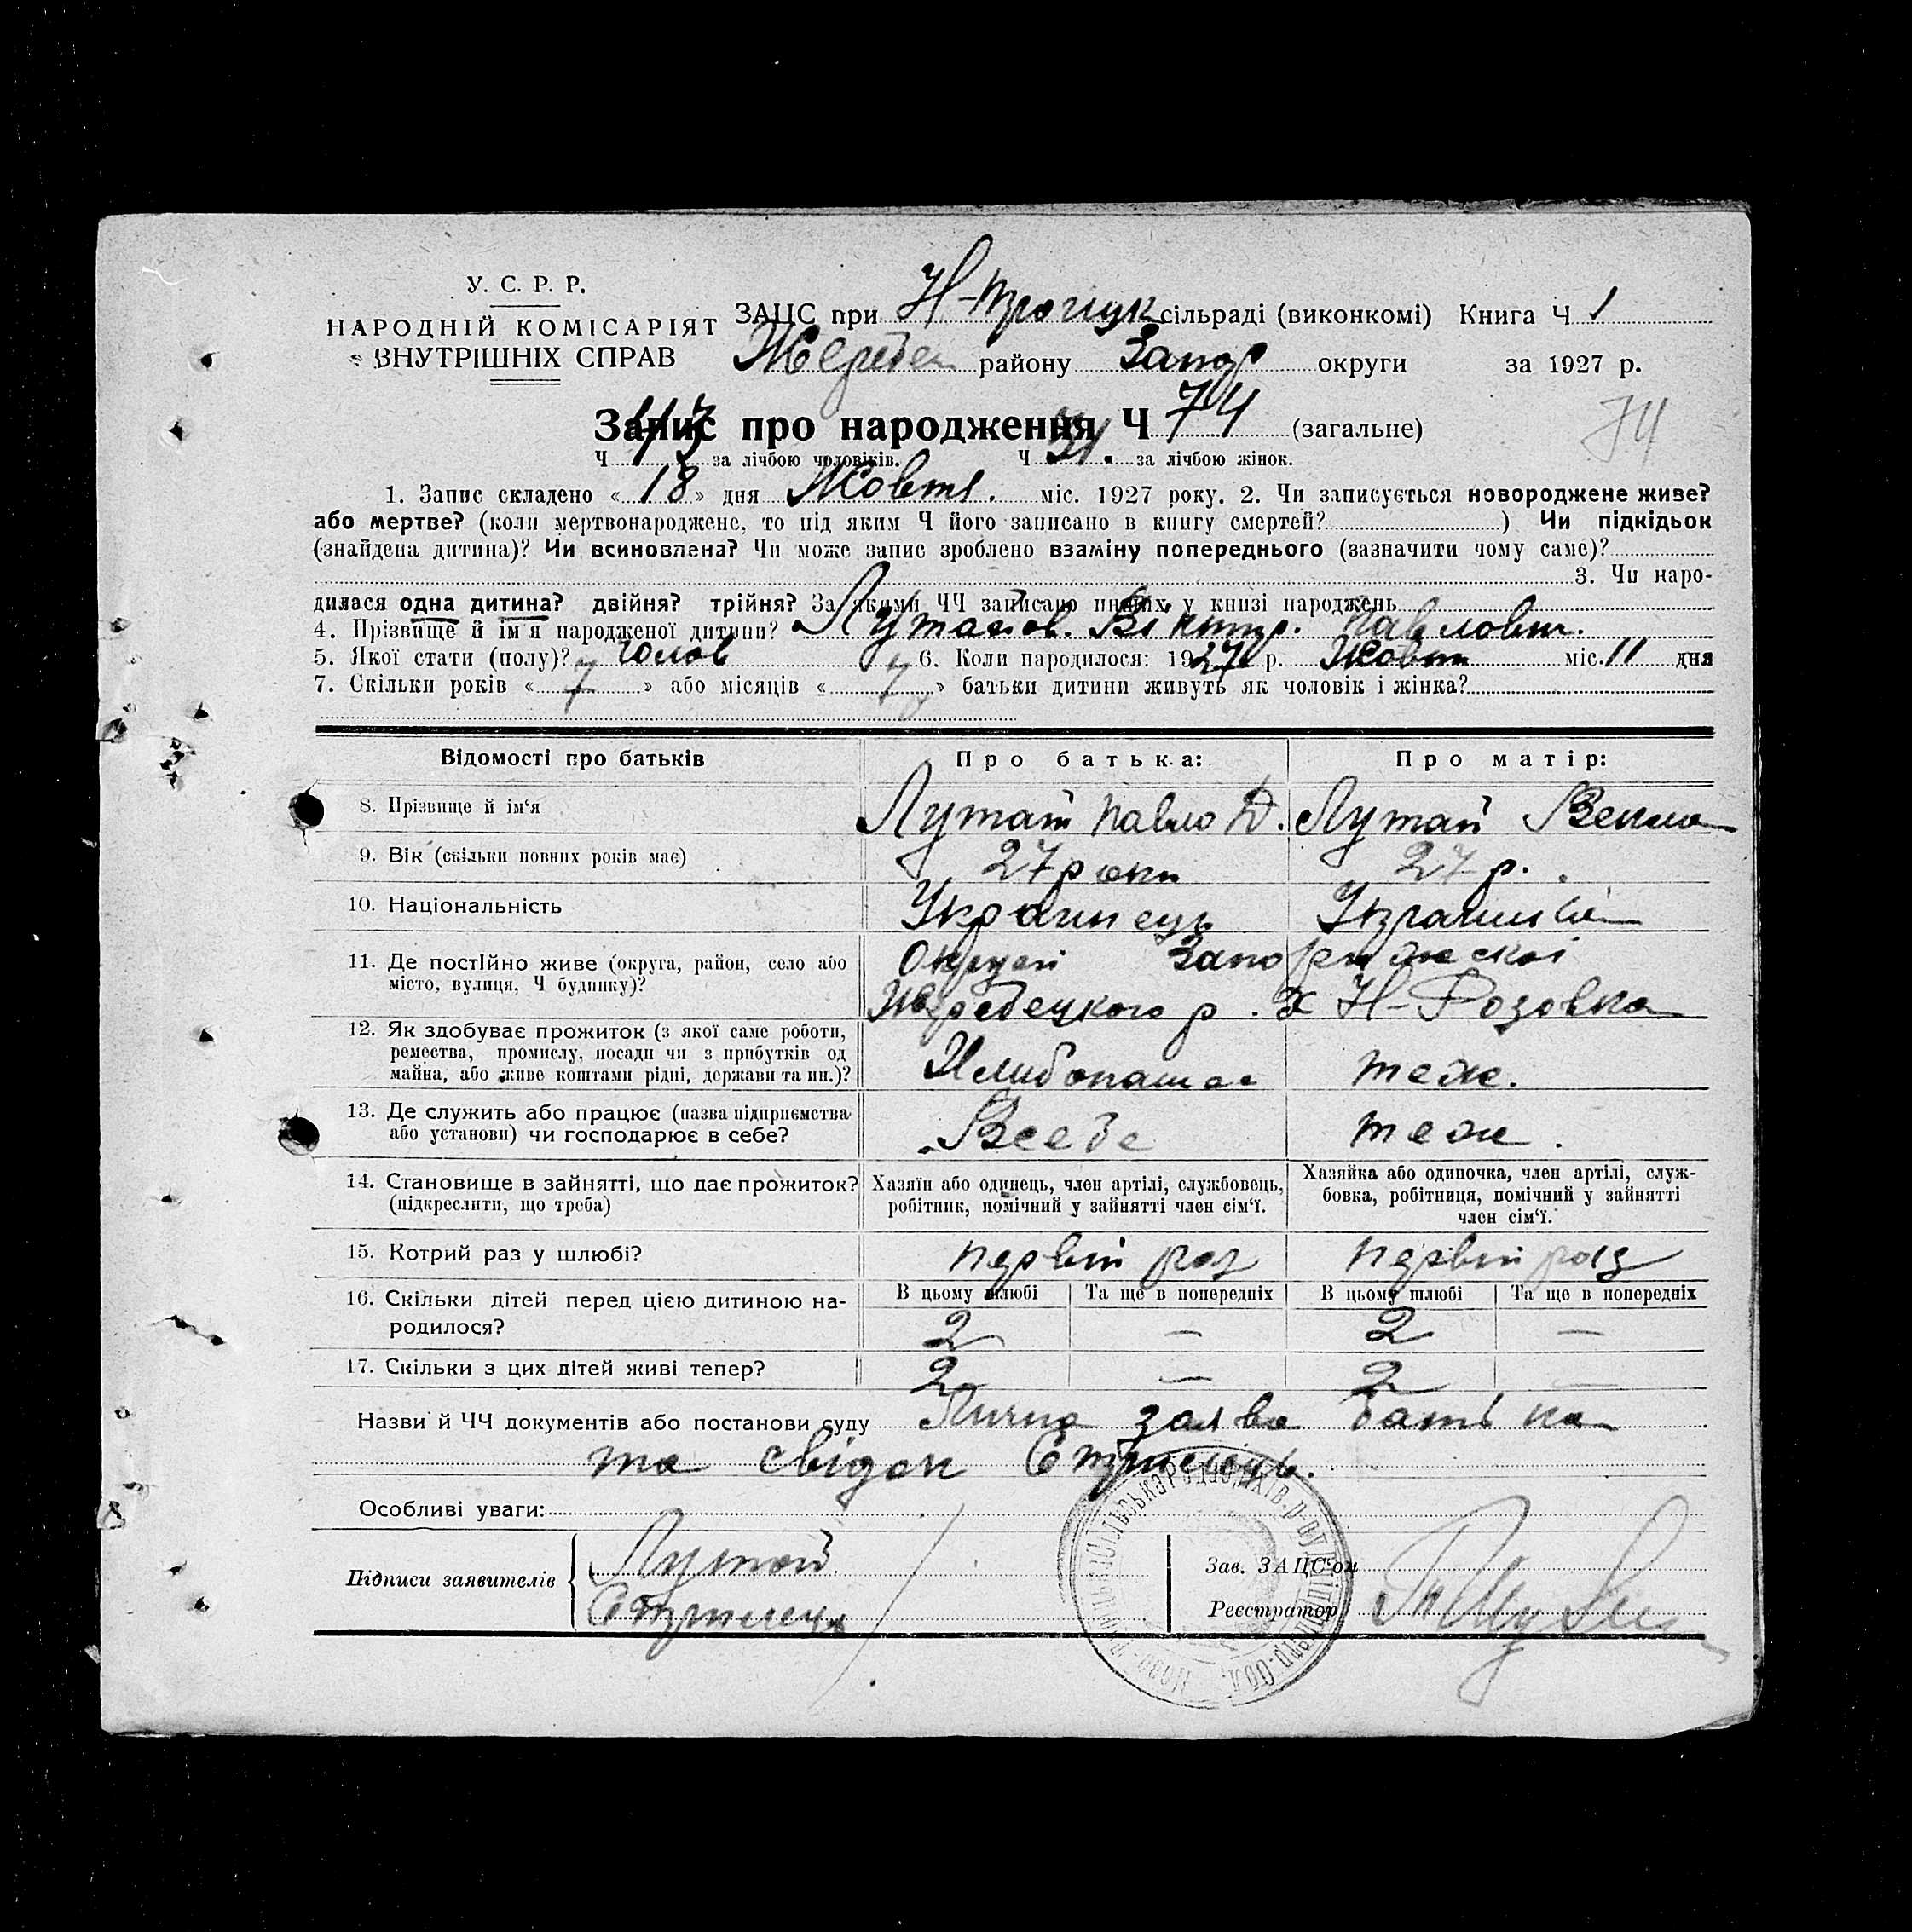 У. С. Р. Р.
НАРОДНІЙ КОМІСАРІЯТ
ВНУТРІШНІХ СПРАВ
ЗАЦС при Н-троїцк сільраді (виконкомі) Книга Ч 1
Жеребец району Запор округи за 1927 р.
Запис про народження Ч 74 (загальне)
74
Ч 43 за лічбою чоловіків. Ч 31. за лічбою жінок.
1. Запис складено «18» дня Жовтня. міс. 1927 року. 2. Чи записується новороджене живе?
або мертве? (коли мертвонароджене, то під яким Ч його записано в книгу смертей? ) Чи підкідьок
(знайдена дитина)? Чи всиновлена? Чи може запис зроблено взаміну попереднього (зазначити чому саме)?
3. Чи наро-
дилася одна дитина? двійня? трійня? За якими ЧЧ записано инших у книзі народжень
4. Прізвище й ім'я народженої дитини? Віктор. Павлович.
5. Якої стати (полу)? чолов 6. Коли народилося: 1927 р. Жовт міс. 11 дня
7. Скільки років «7» або місяців « » батьки дитини живуть як чоловік і жінка?
Відомості про батьків Про батька: Про матір:
8. Прізвище й ім'я Лутай Павло Д. Лутай Векла
9. Вік (скільки повних років має) 27 роки 27 р.
10. Національність Українець Українка
11. Де постійно живе (округа, район, село або Округи Запорижскої
місто, вулиця, Ч будинку)? Жеребецкого р. х Н-Розовка
12. Як здобуває прожиток (з якої саме роботи,
ремества, промислу, посади чи з прибутків од
майна, або живе коштами рідні, держави та ин.)? Хлибопаш теж.
13. Де служить або працює (назва підприємства
або установи) чи господарює в себе? Всебе теж.
14. Становище в зайнятті, що дає прожиток? Хазяїн або одинець, член артілі, службовець, Хазяйка або одиночка, член артілі, служ-
(підкреслити, що треба) робітник, помічний у зайнятті член сім'ї. бовка, робітниця, помічний у зайнятті
член сім'ї.
15. Котрий раз у шлюбі? первий раз первий раз
В цьому шлюбі Та ще в попередніх В цьому шлюбі Та ще в попередніх
16. Скільки дітей перед цією дитиною на-
родилося? 2 — 2 —
17. Скільки з цих дітей живі тепер? 2 — 2 —
Назви й ЧЧ документів або постанови суду Лична заява батька
та свідок Стрилець.
Особливі уваги:
Підписи заявителів Лутай
Стрилець
Зав. ЗАЦС'ом
Реєстратор